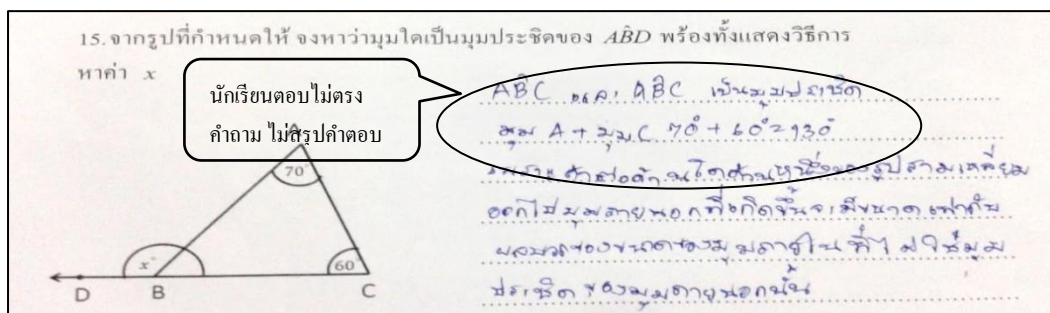 15.จากรูปที่กำหนดให้ จงหาว่ามุมใดเป็นมุมประชิดของ AB̂D พร้อมทั้งแสดงวิธีการ
หาค่า x
นักเรียนตอบไม่ตรง
คำถาม ไม่สรุปคำตอบ
AB̂C และ ABC เป็นมุมประชิด
มุม A + มุม C 70° + 60° = 130°
ด้านใดด้านหนึ่งของรูปสามเหลี่ยม
ออกไปมุมภายนอกที่เกิดขึ้นจะมีขนาดเท่ากับ
ผลบวกของขนาดของมุมภายในที่ไม่ใช่มุม
ประชิดของมุมภายนอกนั้น
70°
x°
60°
D
B
C